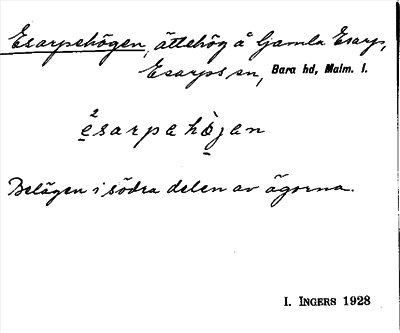 Esarpehögen, ättehög å Gamla Esarp,
Esarps sn, Bara hd, Malm. l.
²esarpahö̀jan
Belägen i södra delen av ägorna.
I. INGERS 1928